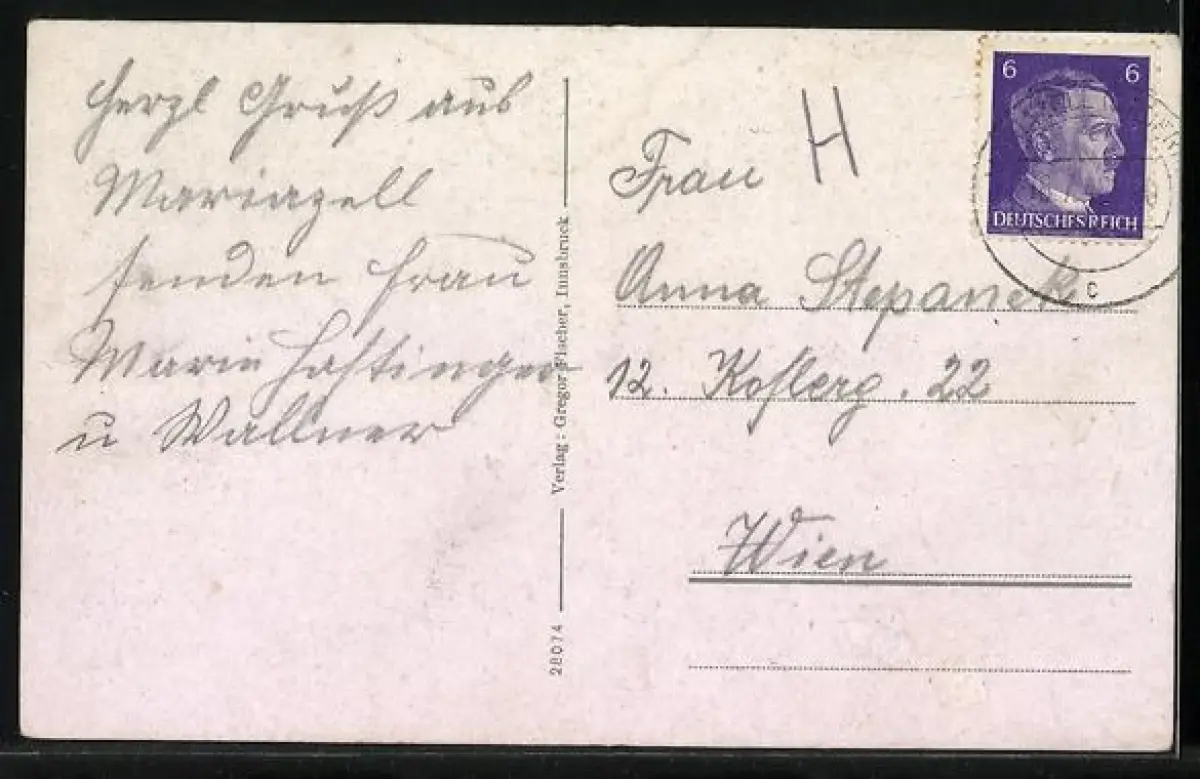 Herzl Gruß aus
Mariazell
senden Frau
Marie Hastinger
u Wallner
Verlag: Gregor Fischer, Innsbruck
28074
H
Frau
Anna Stepanek
12. Koflerg. 22
Wien
6 6
DEUTSCHES REICH
c